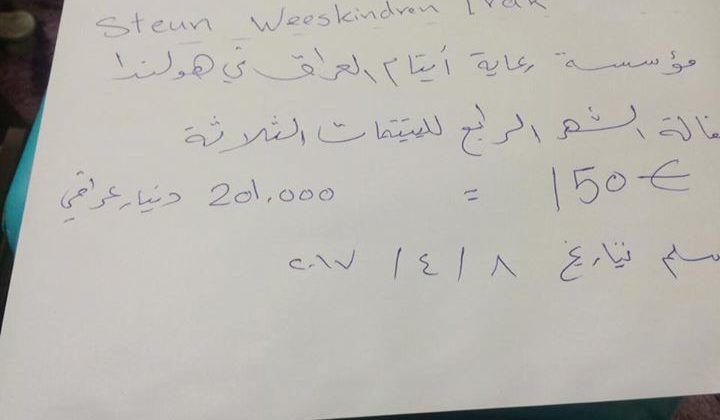 Steun Weeskindren Irak
مؤسسة رعاية أيتام العراق في هولندا
كفالة الشهر الرابع لليتيمات الثلاثة
150€ = 201.000 دينار عراقي
سلم بتاريخ ٨ / ٤ / ٢٠١٧